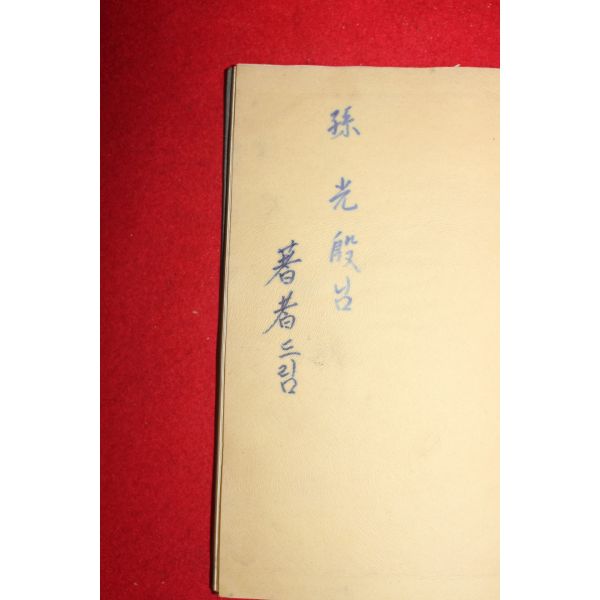 孫光殷님
著者드림